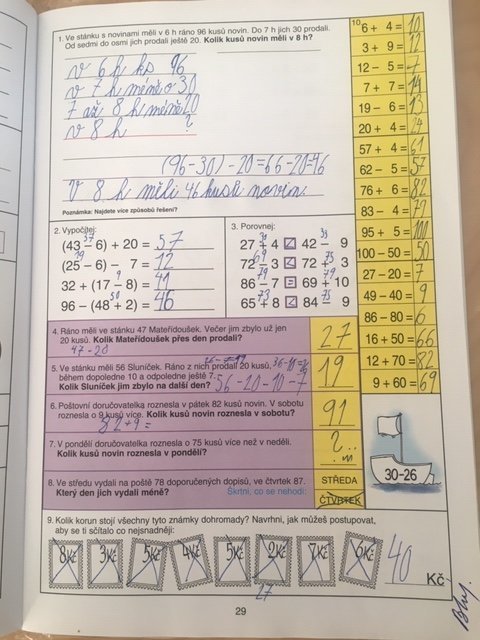 1. Ve stánku s novinami měli v 6 h ráno 96 kusů novin. Do 7 h jich 30 prodali.
Od sedmi do osmi jich prodali ještě 20. Kolik kusů novin měli v 8 h?
v 6 h ks 96
v 7 h méně o 30
7 až 8 h méně 20
v 8 h ?
(96-30)-20=66-20=46
V 8 h měli 46 kusů novin.
Poznámka: Najdete více způsobů řešení?
2. Vypočítej:
37
(43 – 6) + 20 = 57
19
(25 – 6) – 7 = 12
9
32 + (17 – 8) = 41
50
96 – (48 + 2) = 46
3. Porovnej:
31 33
27 + 4 < 42 – 9
69 75
72 – 3 < 72 + 3
79 79
86 – 7 = 69 + 10
73 75
65 + 8 < 84 – 9
4. Ráno měli ve stánku 47 Mateřídoušek. Večer jim zbylo už jen
20 kusů. Kolik Mateřídoušek přes den prodali?
47-20
27
5. Ve stánku měli 56 Sluníček. Ráno z nich prodali 20 kusů,
během dopoledne 10 a odpoledne ještě 7.
Kolik Sluníček jim zbylo na další den? 56-20-10-7
19
6. Poštovní doručovatelka roznesla v pátek 82 kusů novin. V sobotu
roznesla o 9 kusů více. Kolik kusů novin roznesla v sobotu?
82+9=
91
7. V pondělí doručovatelka roznesla o 75 kusů více než v neděli.
Kolik kusů novin roznesla v pondělí?
?
8. Ve středu vydali na poště 78 doporučených dopisů, ve čtvrtek 87.
Který den jich vydali méně? Škrtni, co se nehodí:
STŘEDA
ČTVRTEK
10
6 + 4 = 10
3 + 9 = 12
12 – 5 = 7
7 + 7 = 14
19 – 6 = 13
20 + 4 = 24
57 + 4 = 61
62 – 5 = 57
76 + 6 = 82
83 – 4 = 79
95 + 5 = 100
100 – 50 = 50
27 – 20 = 7
49 – 40 = 9
86 – 80 = 6
16 + 50 = 66
12 + 70 = 82
9 + 60 = 69
30-26
9. Kolik korun stojí všechny tyto známky dohromady? Navrhni, jak můžeš postupovat,
aby se ti sčítalo co nejsnadněji:
8Kč 3Kč 5Kč 4Kč 5Kč 2Kč 7Kč 6Kč 40 Kč
27
29